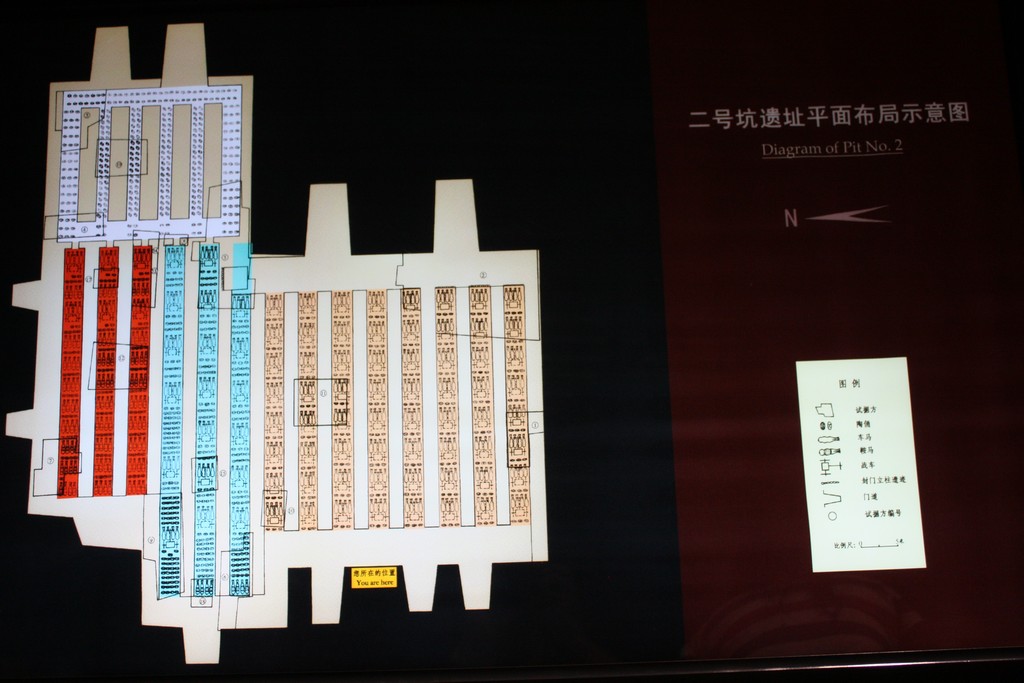 二号坑遗址平面布局示意图
Diagram of Pit No. 2
N
图 例
试掘方
陶俑
车马
鞍马
战车
封门立柱遗迹
门道
试掘方编号
比例尺:
您所在的位置
You are here